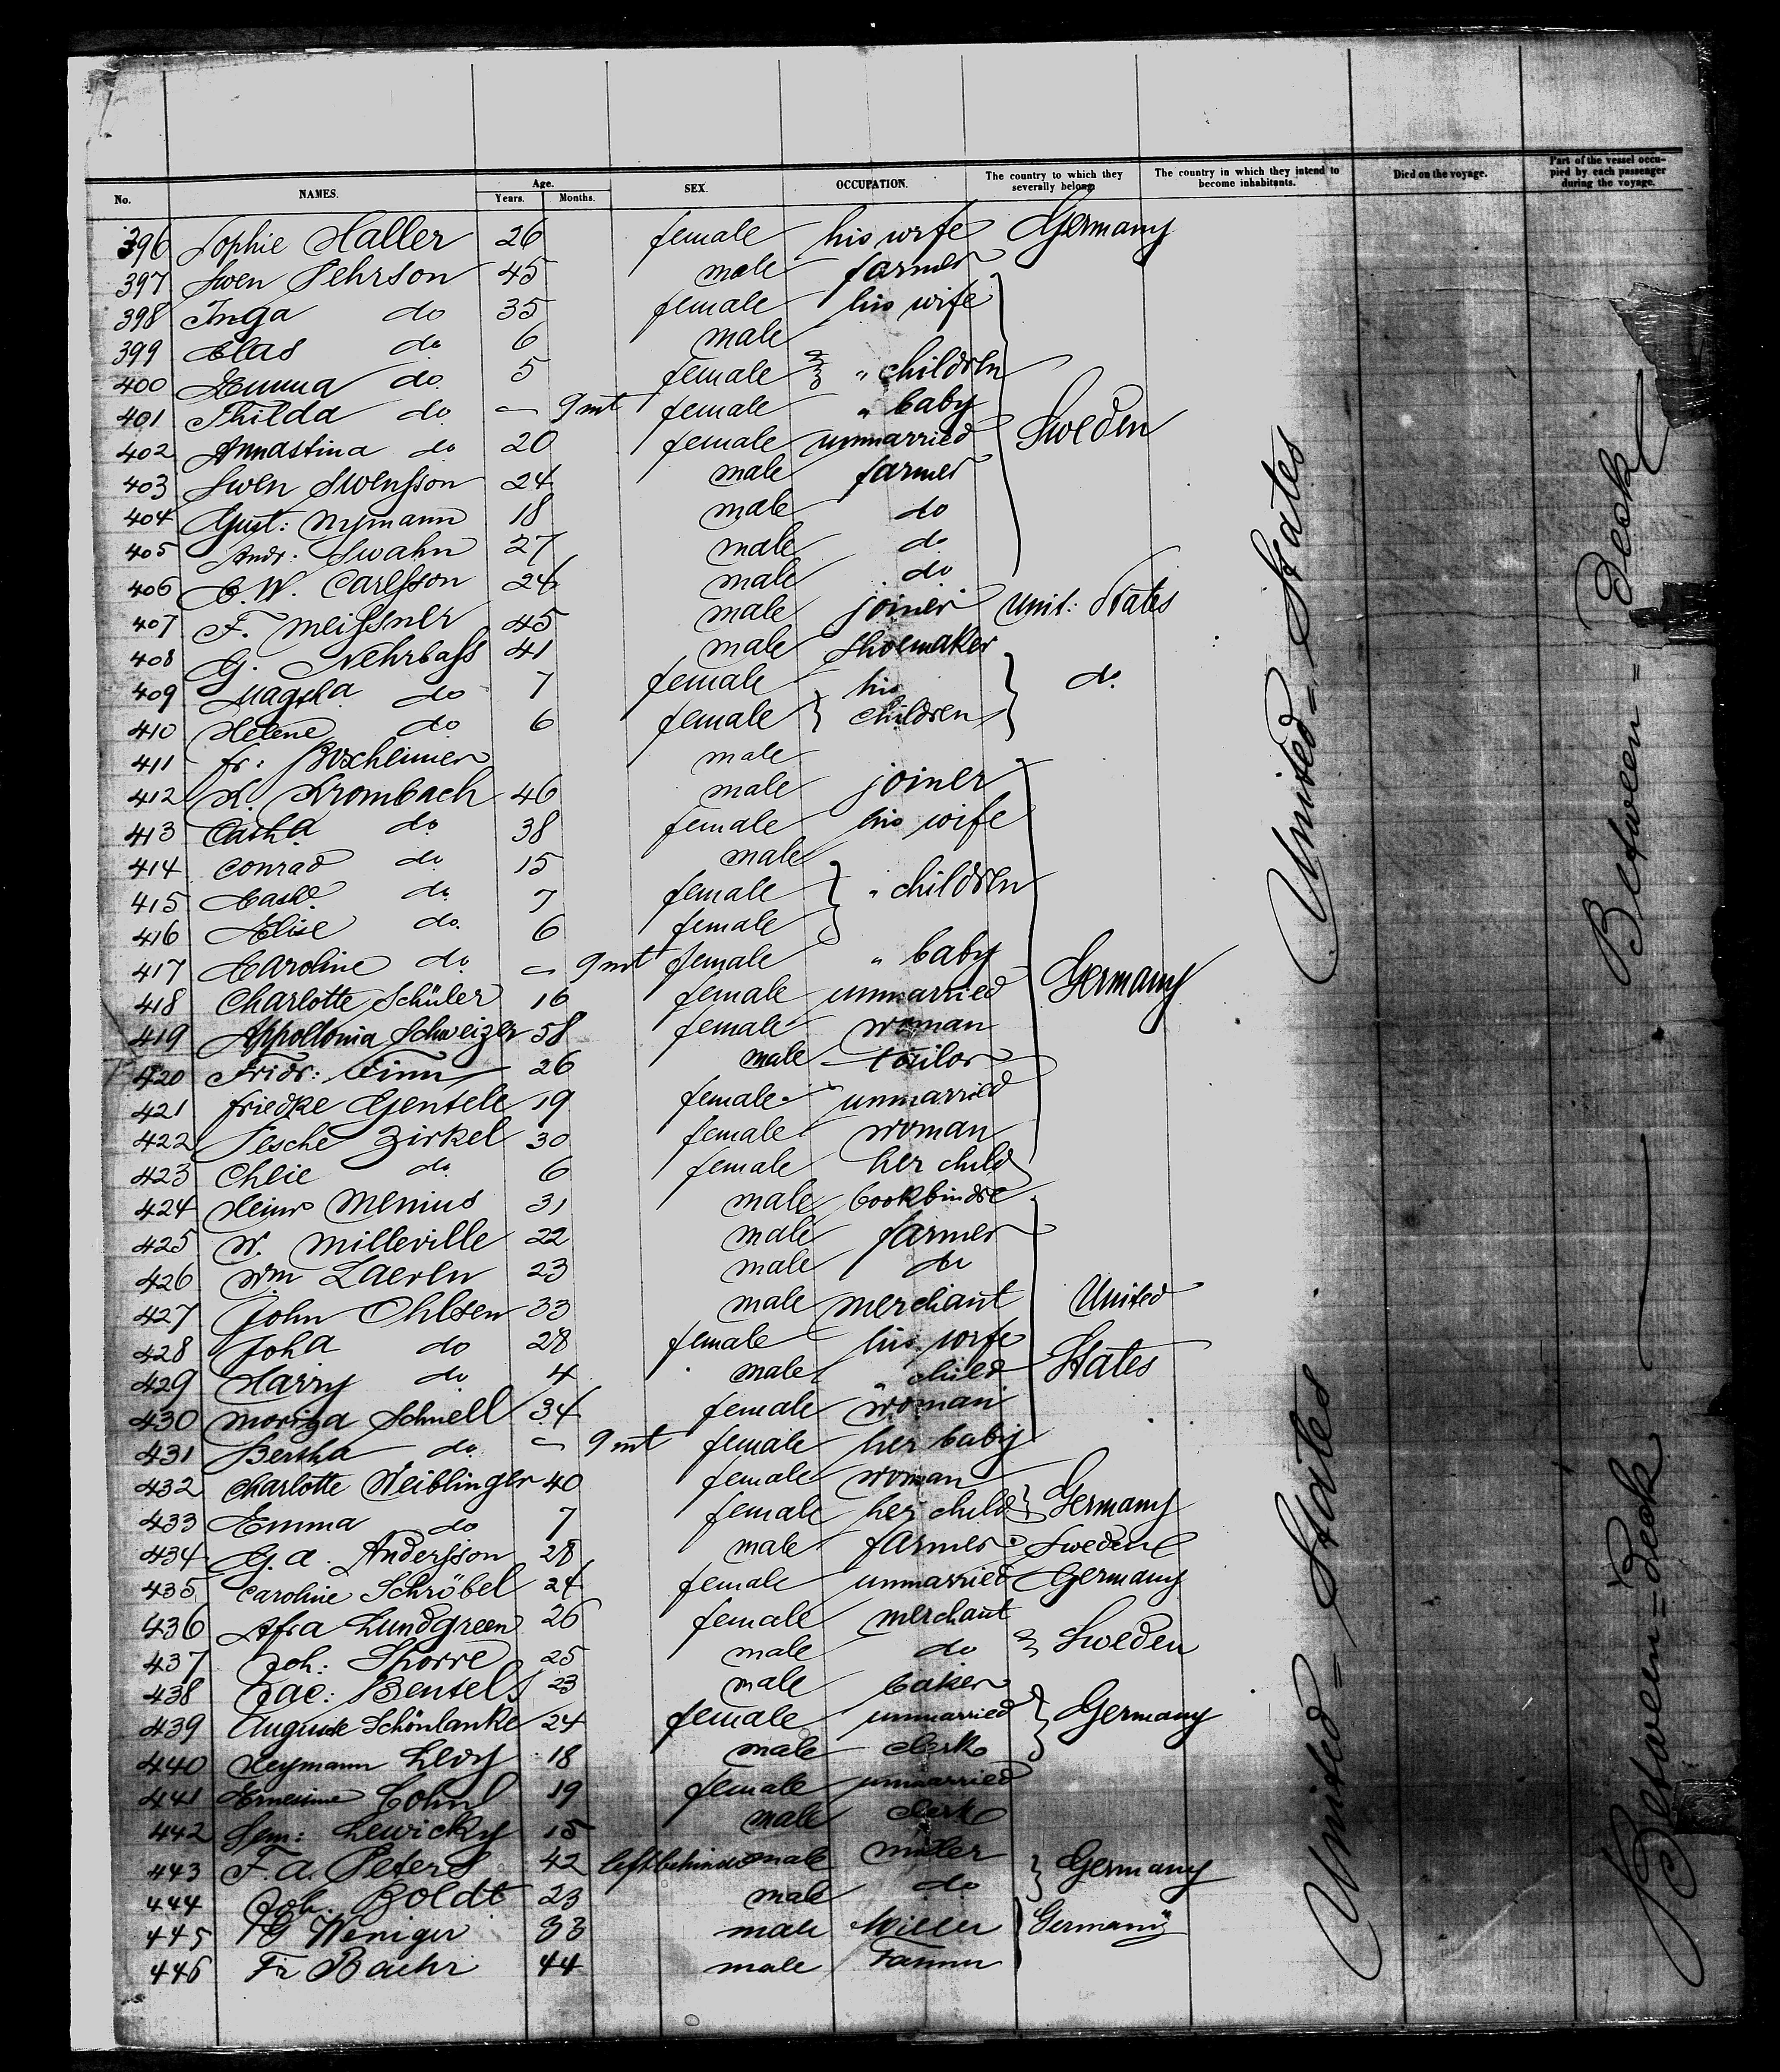 No. NAMES. Age. Years. Months. SEX. OCCUPATION. The country to which they severally belong. The country in which they intend to become inhabitants. Died on the voyage. Part of the vessel occupied by each passenger during the voyage.
396 Sophie Haller 26 female his wife Germany
397 Swen Pehrson 45 male farmer
398 Inga do 35 female his wife
399 Clas do 6 male
400 Emma do 5 female " children
401 Thilda do — 9 mt female " baby
402 Annastina do 20 female unmarried Sweden
403 Swen Swensson 24 male farmer
404 Gust: Nymann 18 male do
405 Andr: Swahn 27 male do
406 C. W. Carlsson 24 male do
407 F. Meissner 45 male joiner Unit: States
408 G. Nehrbass 41 male shoemaker
409 Magda do 7 female his do
410 Helene do 6 female children
411 Fr: male
412 K. Krombach 46 male joiner
413 Catha do 38 female his wife
414 Conrad do 15 male
415 Cath. do 7 female " children
416 Elise do 6 female
417 Caroline do — 9 mt female " baby
418 Charlotte Schüler 16 female unmarried Germany
419 Appollonia Schweizer 58 female woman
420 Fridr: Finn 26 male tailor
421 Friedke Gentele 19 female unmarried
422 Pesche Zirkel 30 female woman
423 do 6 female her child
424 Heinr Menius 31 male bookbinder
425 W. Milleville 22 male farmer
426 Wm 23 male do
427 John Ohlsen 33 male merchant United
428 Joha do 28 female his wife
429 Harry do 4 male " child States
430 Schnell 34 female woman
431 Bertha do — 9 mt female her baby
432 Charlotte Weiblinger 40 female woman
433 Emma do 7 female her child Germany
434 G. A. Andersson 28 male farmer Sweden
435 Caroline Schröbel 24 female unmarried Germany
436 Afra Lundgreen 26 female merchant
437 Joh: 25 male do Sweden
438 Jac: Bentels 23 male baker
439 Auguste Schönlanke 24 female unmarried Germany
440 Heymann Levy 18 male clerk
441 Ernestine Cohn 19 female unmarried
442 Sem: Lewicky 15 male clerk
443 F. A. Peters 42 left behind male miller
444 Joh. Boldt 23 male do Germany
445 G Weniger 33 male Miller Germany
446 Fr Baehr 44 male Farmer
United = States
United = States
Between = Deck
Between = Deck